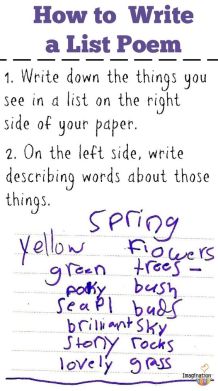 How to Write
a List Poem
1. Write down the things you
see in a list on the right
side of your paper.
2. On the left side, write
describing words about those
things.
Spring
Yellow Flowers
green trees
bush
buds
brilliant sky
stony rocks
lovely grass
Imagination